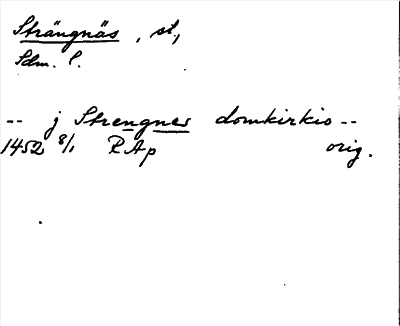 Strängnäs, st,
Sdm. l.
-- j Strengnes domkirkio --
1452 8/1 RAp orig.